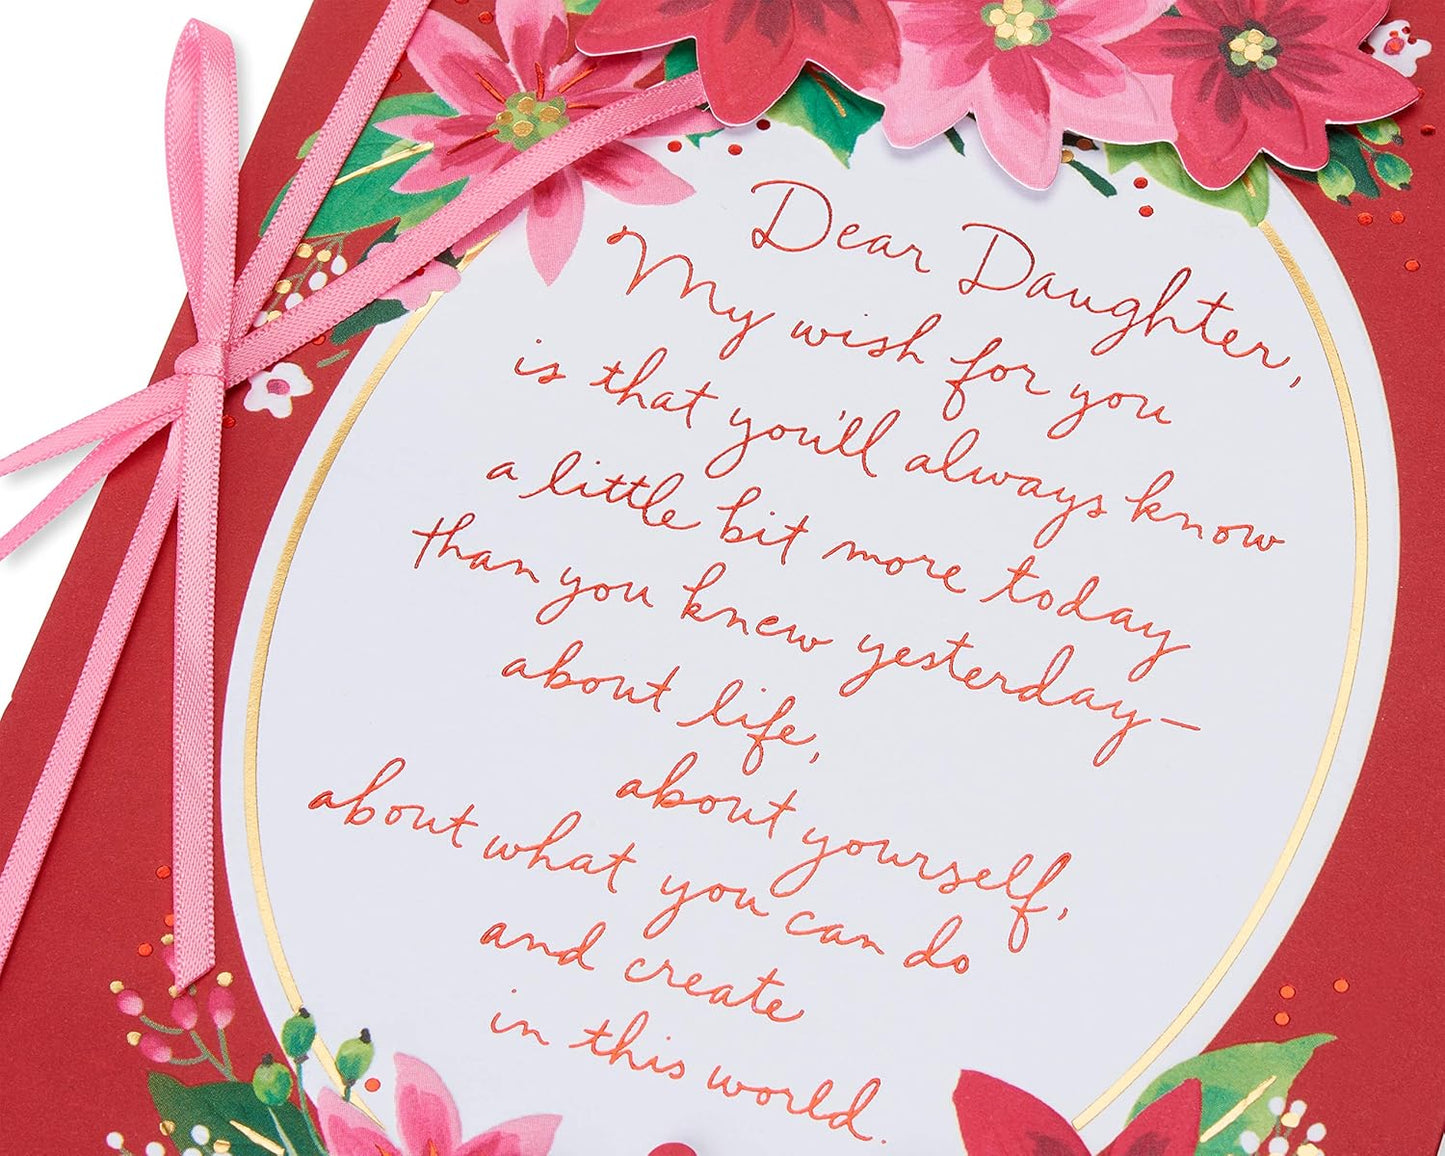 Dear Daughter,
My wish for you
is that you'll always know
a little bit more today
than you knew yesterday—
about life,
about yourself,
about what you can do
and create
in this world.